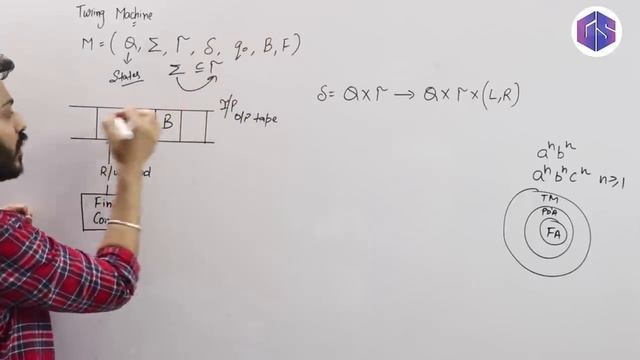 Turing Machine
M = ( Q, Σ, Γ, δ, q₀, B, F)
States
Σ ⊆ Γ
I/P
O/P tape
B
δ = Q × Γ → Q × Γ × (L,R)
aⁿbⁿ
aⁿbⁿcⁿ n≥1
TM
PDA
FA